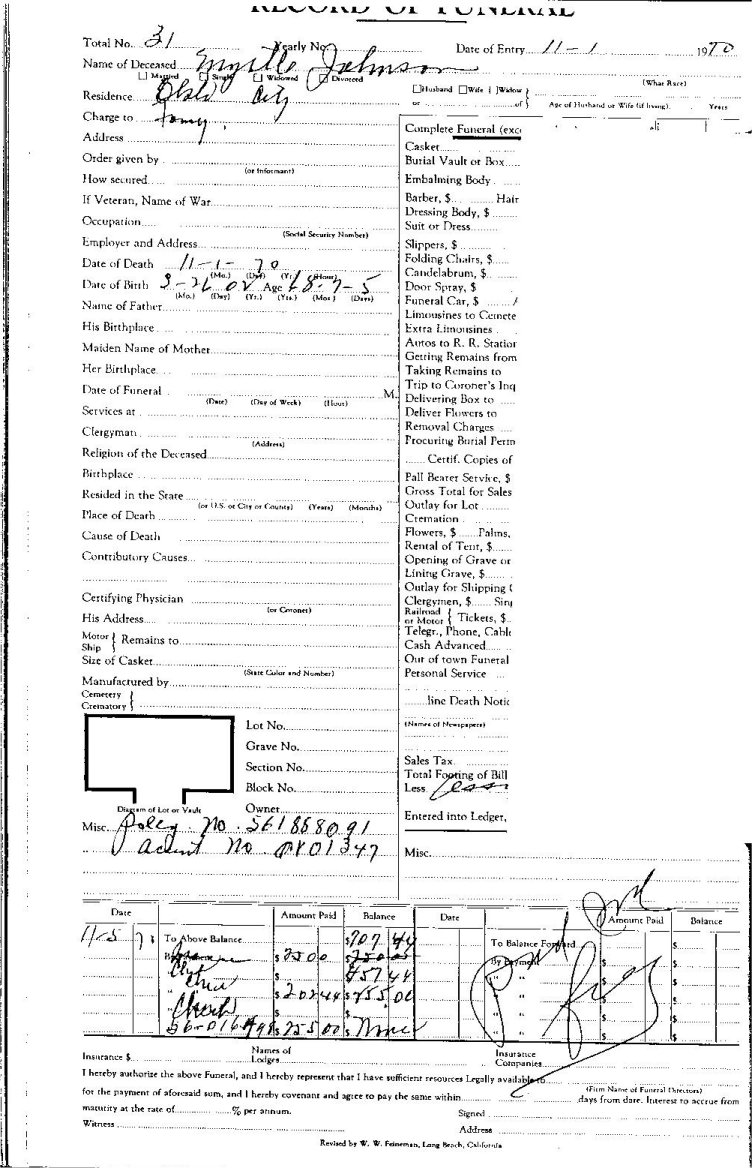 RECORD OF FUNERAL
Total No. 31 Yearly No. Date of Entry 11-1 1970
Name of Deceased Myrtle Johnson
Married Single Widowed Divorced
Husband Wife Widow (What Race)
or of Age of Husband or Wife (if living) Years
Residence City
Charge to
Address
Order given by
(or Informant)
How secured
If Veteran, Name of War
Occupation
(Social Security Number)
Employer and Address
Date of Death 11-1-70
(Mo.) (Day) (Yr.) (Hour)
Date of Birth 3-26 02 Age 68-7-5
(Mo.) (Day) (Yr.) (Yrs.) (Mos.) (Days)
Name of Father
His Birthplace
Maiden Name of Mother
Her Birthplace
Date of Funeral M.
(Date) (Day of Week) (Hour)
Services at
Clergyman
(Address)
Religion of the Deceased
Birthplace
Resided in the State
(or U.S. or City or County) (Years) (Months)
Place of Death
Cause of Death
Contributory Causes
Certifying Physician
(or Coroner)
His Address
Motor
Ship } Remains to
Size of Casket
(State Color and Number)
Manufactured by
Cemetery
Crematory }
Lot No.
Grave No.
Section No.
Block No.
Diagram of Lot or Vault Owner
Misc. Policy No 561868091
No
Complete Funeral (exc
Casket
Burial Vault or Box
Embalming Body
Barber, $ Hair
Dressing Body, $
Suit or Dress
Slippers, $
Folding Chairs, $
Candelabrum, $
Door Spray, $
Funeral Car, $
Limousines to Cemete
Extra Limousines
Autos to R. R. Station
Getting Remains from
Taking Remains to
Trip to Coroner's Inq
Delivering Box to
Deliver Flowers to
Removal Charges
Procuring Burial Perm
Certif. Copies of
Pall Bearer Service, $
Gross Total for Sales
Outlay for Lot
Cremation
Flowers, $ Palms,
Rental of Tent, $
Opening of Grave or
Lining Grave, $
Outlay for Shipping (
Clergymen, $ Sing
Railroad
or Motor { Tickets, $
Telegr., Phone, Cable
Cash Advanced
Out of town Funeral
Personal Service
line Death Notic
(Names of Newspapers)
Sales Tax
Total Footing of Bill
Less
Entered into Ledger,
Misc.
Date Amount Paid Balance Date Amount Paid Balance
11-5 To Above Balance $707 44 To Balance Forward $
By Payment $250 0 By Payment $
457 44
" $202 44 $255 00 " "
Check
$255 00 $ None
Insurance $ Names of Lodges Insurance Companies
I hereby authorize the above Funeral, and I hereby represent that I have sufficient resources Legally available to
(Firm Name of Funeral Directors)
for the payment of aforesaid sum, and I hereby covenant and agree to pay the same within days from date. Interest to accrue from
maturity at the rate of % per annum. Signed
Witness Address
Revised by W. W. Feineman, Long Beach, California